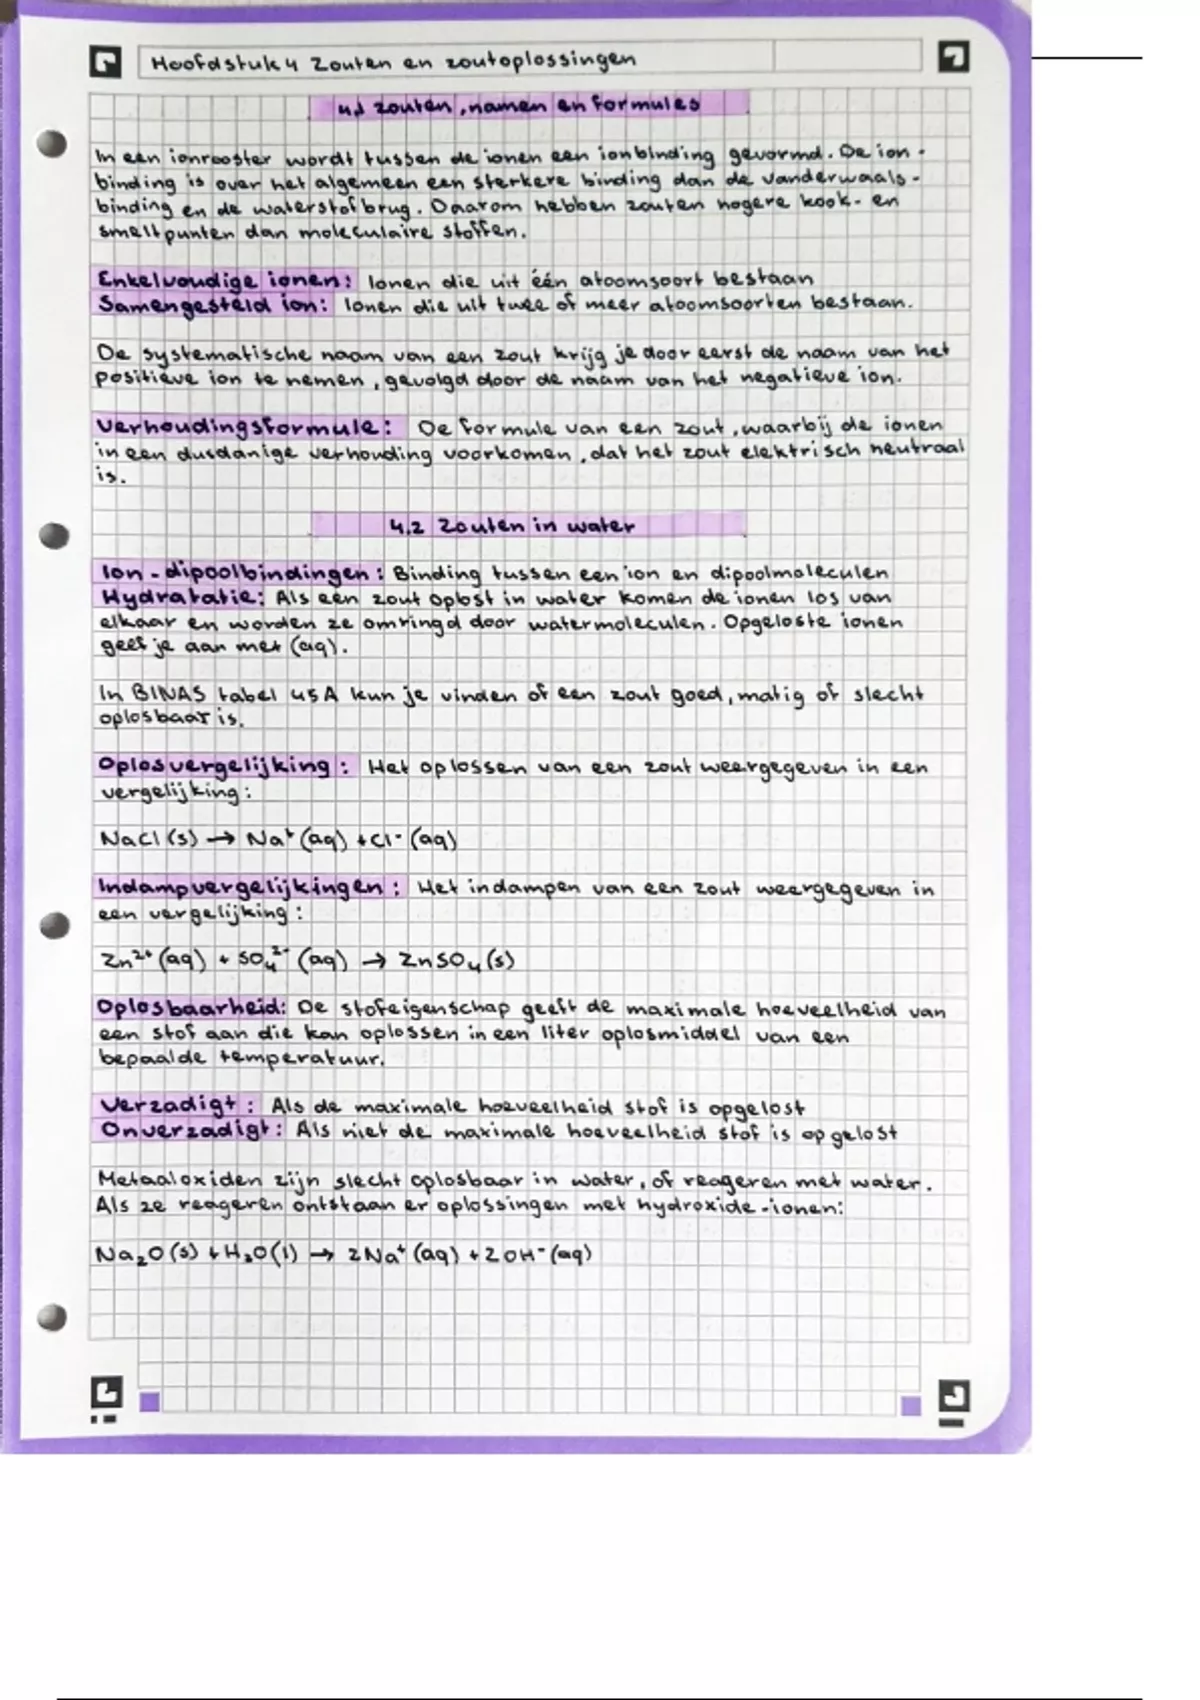 Hoofdstuk 4 Zouten en zoutoplossingen
4.1 zouten, namen en formules
In een ionrooster wordt tussen de ionen een ionbinding gevormd. De ion-
binding is over het algemeen een sterkere binding dan de vanderwaals-
binding en de waterstofbrug. Daarom hebben zouten hogere kook- en
smeltpunten dan moleculaire stoffen.
Enkelvoudige ionen: Ionen die uit één atoomsoort bestaan
Samengesteld ion: Ionen die uit twee of meer atoomsoorten bestaan.
De systematische naam van een zout krijg je door eerst de naam van het
positieve ion te nemen, gevolgd door de naam van het negatieve ion.
Verhoudingsformule: De formule van een zout, waarbij de ionen
in een dusdanige verhouding voorkomen, dat het zout elektrisch neutraal
is.
4.2 Zouten in water
Ion-dipoolbindingen: Binding tussen een ion en dipoolmoleculen
Hydratatie: Als een zout oplost in water komen de ionen los van
elkaar en worden ze omringd door watermoleculen. Opgeloste ionen
geef je aan met (aq).
In BINAS tabel 45A kun je vinden of een zout goed, matig of slecht
oplosbaar is.
Oplosvergelijking: Het oplossen van een zout weergegeven in een
vergelijking:
NaCl (s) → Na⁺ (aq) + Cl⁻ (aq)
Indampvergelijkingen: Het indampen van een zout weergegeven in
een vergelijking:
Zn²⁺ (aq) + SO₄²⁻ (aq) → ZnSO₄ (s)
Oplosbaarheid: De stofeigenschap geeft de maximale hoeveelheid van
een stof aan die kan oplossen in een liter oplosmiddel van een
bepaalde temperatuur.
Verzadigt: Als de maximale hoeveelheid stof is opgelost
Onverzadigt: Als niet de maximale hoeveelheid stof is opgelost
Metaaloxiden zijn slecht oplosbaar in water, of reageren met water.
Als ze reageren ontstaan er oplossingen met hydroxide-ionen:
Na₂O (s) + H₂O (l) → 2Na⁺ (aq) + 2OH⁻ (aq)